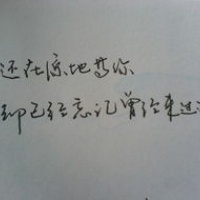 还在原地等你
却已经忘记曾经来过